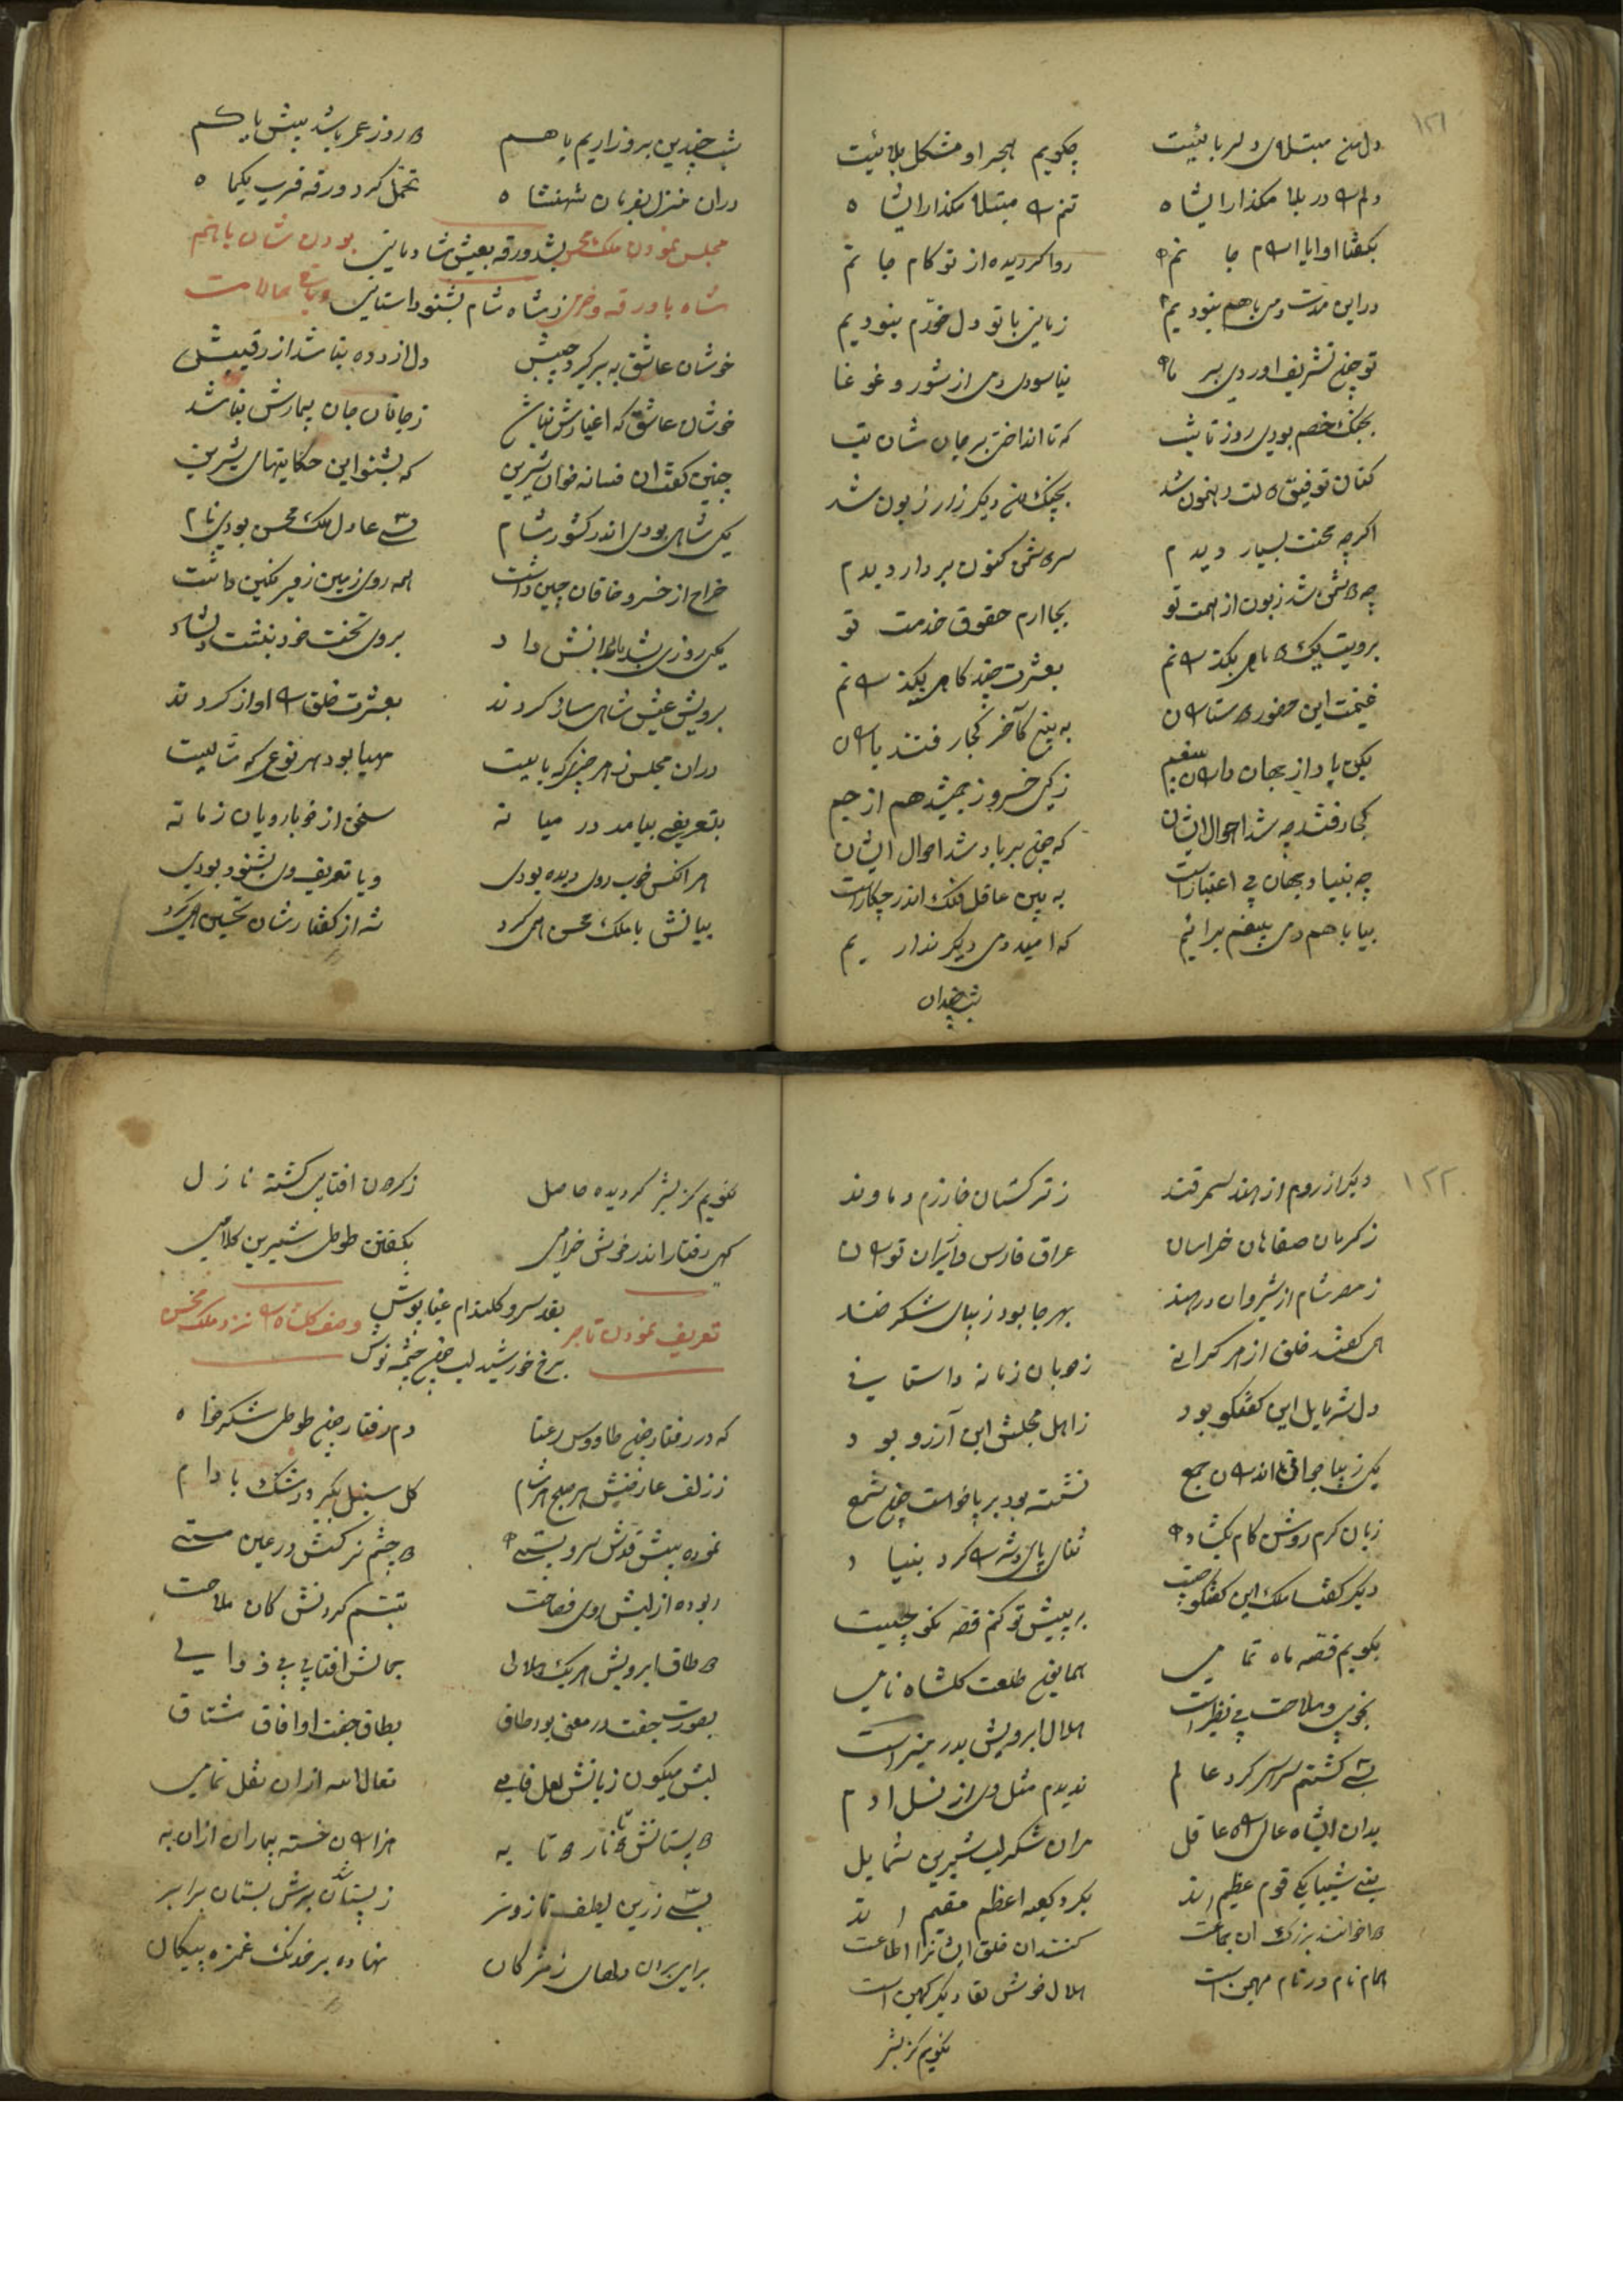 ۱۲۱
دل من مبتلای دلربائیست چگویم هجر او مشکل بلائیست
دلم را در بلا مگذار ای شاه تنم را مبتلا مگذار ای شاه
بگفتا او ایا رام جانم روا گردیده از تو کام جانم
در این مدت دمی باهم نبودیم زمانی با تو دل خرم نبودیم
تو چون تشریف اوردی بر ما نیاسودی دمی از شور و غوغا
بجنگ خصم بودی روز تا شب که تا انداختی بر جان شان تب
کنان توفیق دولت رهنمون شد بچنگ من دیگر زار زبون شد
اکرچه محنت بسیار دیدم سر دشمن کنون بر دار دیدم
چه دشمن شد زبون از همت تو بجا ارم حقوق خدمت تو
برویت یک دمی بگذرانم بعشرت چند گاهی بگذرانم
غنیمت این حضور دوستاران به بین کآخر کجا رفتند یاران
یکی یاد از جهان داران بیغم ز کی خسرو ز جمشید هم از جم
کجا رفتند چه شد احوال ایشان که چون برباد شد احوال ایشان
چه دنیا و جهان بی اعتبار است به بین عاقل فلک اندر چکار است
بیا باهم دمی بیغم برائیم که امید دمی دیگر نداریم
شب چندان
شب چندین بروز اریم باهم که روز عمر باشد بیش یا کم
دران منزل بفرمان شهنشاه تحمل کرد ورقه قرب یکماه
مجلس نمودن ملک محسن بشد ورقه بعیش شادمانی بودن شان باهم
شاه با ورقه و ز شاه شام بشنو داستانی
خوشان عاشق به بر گیرد حبیبش دل ازرده نباشد از رقیبش
خوشان عاشق که اغیارش نباشد ز جانان جان بیمارش نباشد
چنین گفت ان فسانه خوان شیرین که بشنو این حکایتهای شیرین
یکی شاهی بودی اندر کشور شام شهی عادل ملک محسن بودی نام
خراج از خسرو خاقان چین داشت همه روی زمین زیر نگین داشت
یکی روزی بشد دانش داد بروی تخت خود بنشست دلشاد
برویش عیش شاهی ساز کردند بعشرت خلق را اواز کردند
دران مجلس ز هر چیزی که بایست مهیا بود هر نوعی که شایست
بتعریفی بیامد در میانه سخن از خوبرویان زمانه
هر انکس خوب روی دیده بودی و یا تعریف وی بشنوده بودی
بیانش با ملک محسن همی کرد شه از گفتارشان تحسین همی کرد
۱۲۲
دیگر از روم از هند سمرقند ز ترکستان خارزم دماوند
ز کرمان صفاهان خراسان عراق فارس و ایران توران
ز مصر شام از شیروان در هند بهر جا بود زیبای شکر خند
همی گفتند خلق از هر کرانی ز خوبان زمانه داستانی
دل شه مایل این گفتگو بود ز اهل مجلسش این آرزو بود
یکی زیبا جوانی اندران جمع نشسته بود بر پا خواست چون شمع
زبان کرم روشن کام بگشاد ثنای پادشه را کرد بنیاد
دیگر گفتا ملک این گفتگو چیست به پیش تو کنم قصه نکو چیست
بگویم قصه ماه تمامی همایون طلعت گلشاه نامی
بخوبی و ملاحت بی نظیر است هلال ابرویش بدر منیر است
بسی گشتم سراسر گرد عالم ندیدم مثل وی از نسل ادم
بدان ای شاه عالی رای عاقل مران شکر لب شیرین شمایل
بنی شیبا یکی قوم عظیم اند بگرد کعبه اعظم مقیم اند
دو اخوانند بزرگ ان جماعت کنند ان خلق ایشانرا اطاعت
همام نام در نام مهین است هلال خوش لقا دیگر کهین است
نگویم کز بشر
نگویم کز بشر گردیده حاصل ز گردون افتابی گشته نازل
گهی رفتار اندر خوش خرامی بگفتن طوطی شیرین کلامی
تعریف نمودن تاجر بقد سرو گلندام عنبا پوش وصف گلشاه را نزد ملک محسن
برخ خورشید لب چون چشمه نوش
که در رفتار چون طاووس رعنا دم رفتار چون طوطی شکر خواه
ز زلف عارضش هر صبح هر شام گل سنبل بگیرد رشک بادام
نموده پیش قدش سرو پستی دو چشم نرگسش در عین مستی
ربوده از لبش روی فصاحت تبسم کردنش کان ملاحت
دو طاق ابرویش هر یک هلالی جمالش افتابی بی زوالی
بصورت جفت در معنی بود طاق بطاق جفت او افاق مشتاق
لبش میگون زبانش لعل فامی تعال الله ازان نقل تمامی
دو پستانش نار دو تا به هزاران خسته بیماران ازان به
بسی زرین لطف تازه تر ز پستان برش بستان برابر
برای بردن دلهای ز مژگان نهاده بر خدنگ غمزه پیکان